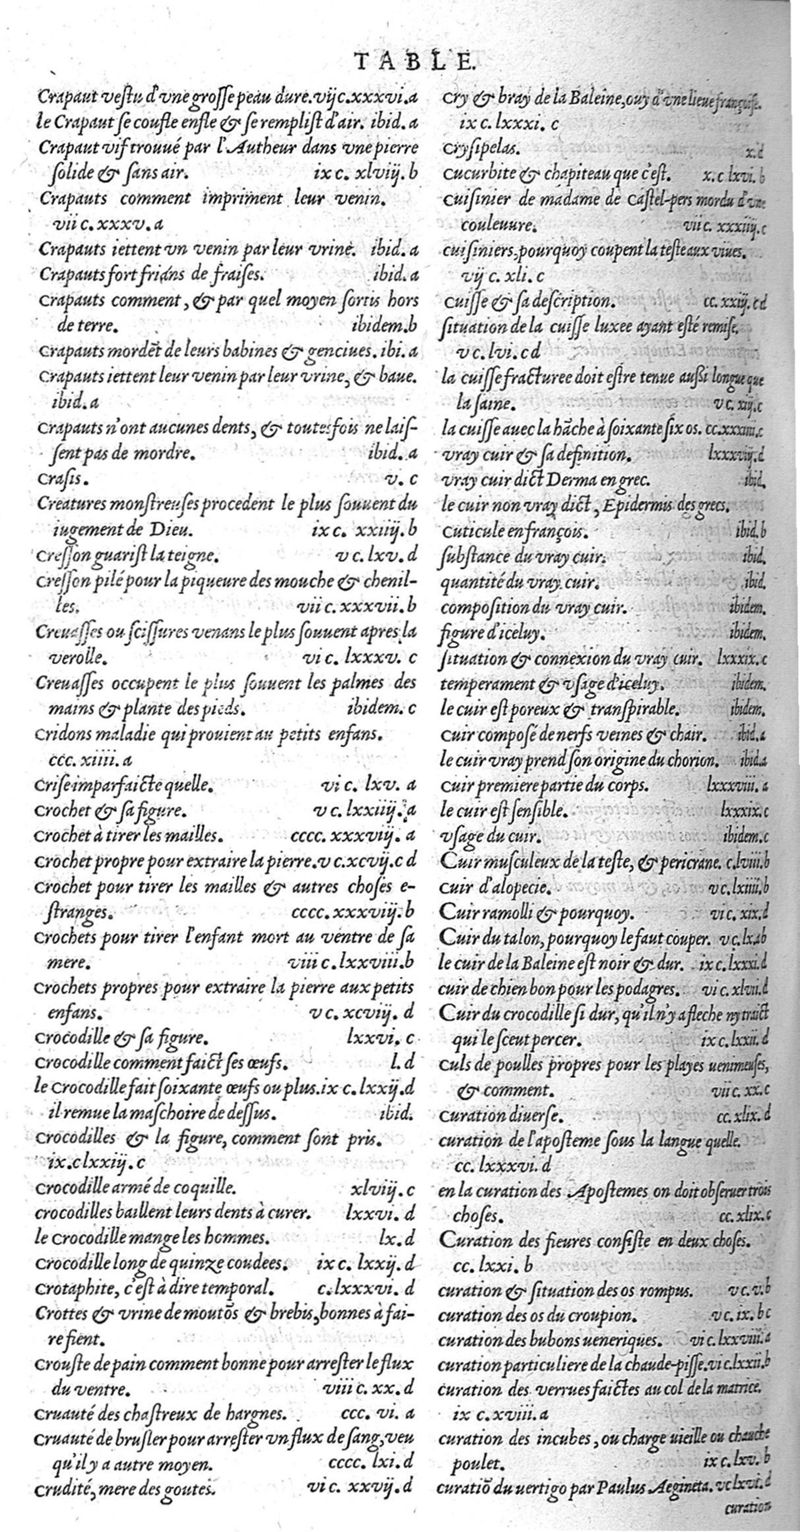 TABLE.
Crapaut vestu d'vne grosse peau dure. vij c. xxxvi. a
le Crapaut se coufle enfle & se remplist d'air. ibid. a
Crapaut vif trouué par l'Autheur dans vne pierre
solide & sans air. ix c. xlviij. b
Crapauts comment impriment leur venin.
vii c. xxxv. a
Crapauts iettent vn venin par leur vriné. ibid. a
Crapauts fort frians de fraises. ibid. a
Crapauts comment, & par quel moyen sortis hors
de terre. ibidem. b
Crapauts mordēt de leurs babines & genciues. ibi. a
Crapauts iettent leur venin par leur vrine, & baue.
ibid. a
Crapauts n'ont aucunes dents, & toutesfois ne lais-
sent pas de mordre. ibid. a
Crasis. v. c
Creatures monstreuses procedent le plus souuent du
iugement de Dieu. ix c. xxiiij. b
Cresson guarist la teigne. v c. lxv. d
Cresson pilé pour la piqueure des mouche & chenil-
les. vii c. xxxvii. b
Creuasses ou scissures venans le plus souuent apres la
verolle. vi c. lxxxv. c
Creuasses occupent le plus souuent les palmes des
mains & plante des pieds. ibidem. c
Cridons maladie qui prouient au petits enfans.
ccc. xiiii. a
Crise imparfaicte quelle. vi c. lxv. a
Crochet & sa figure. v c. lxxiiij. a
Crochet à tirer les mailles. cccc. xxxvij. a
Crochet propre pour extraire la pierre. v c. xcvij. c d
Crochet pour tirer les mailles & autres choses e-
stranges. cccc. xxxviij. b
Crochets pour tirer l'enfant mort au ventre de sa
mere. viii c. lxxviii. b
Crochets propres pour extraire la pierre aux petits
enfans. v c. xcviij. d
Crocodille & sa figure. lxxvi. c
Crocodille comment faict ses œufs. l. d
le Crocodille fait soixante œufs ou plus. ix c. lxxij. d
il remue la maschoire de dessus. ibid.
Crocodilles & la figure, comment sont pris.
ix. c lxxiij. c
Crocodille armé de coquille. xlviij. c
crocodilles baillent leurs dents à curer. lxxvi. d
le Crocodille mange les hommes. lx. d
Crocodille long de quinze coudees. ix c. lxxij. d
Crotaphite, c'est à dire temporal. c. lxxxvi. d
Crottes & vrine de moutōs & brebis, bonnes à fai-
re fient.
Crouste de pain comment bonne pour arrester le flux
du ventre. viii c. xx. d
Cruauté des chastreux de hargnes. ccc. vi. a
Cruauté de brusler pour arrester vn flux de sang, veu
qu'il y a autre moyen. cccc. lxi. d
Crudité, mere des goutes. vi c. xxvij. d
Cry & bray de la Baleine, ouy d'vne lieue françoise.
ix c. lxxxi. c
Crysipelas. x. d
Cucurbite & chapiteau que c'est. x. c lxvi. b
Cuisinier de madame de Castel-pers mordu d'vne
couleuure. vii c. xxxiiij. c
cuisiniers, pourquoy coupent la teste aux viues.
vij c. xli. c
Cuisse & sa description. cc. xxiij. c d
situation de la cuisse luxee ayant esté remise.
v c. lvi. c d
la cuisse fracturee doit estre tenue aussi longue que
la saine. v c. xij. c
la cuisse auec la hāche à soixante six os. cc. xxxiiii. c
vray cuir & sa definition. lxxxvij. d
vray cuir dict Derma en grec. ibid.
le cuir non vray dict, Epidermis des grecs.
Cuticule en françois. ibid. b
substance du vray cuir. ibid.
quantité du vray cuir. ibid.
composition du vray cuir. ibidem.
figure d'iceluy. ibidem.
situation & connexion du vray cuir. lxxxix. c
temperament & vsage d'iceluy. ibidem.
le cuir est poreux & transpirable. ibidem.
Cuir composé de nerfs veines & chair. ibid. a
le cuir vray prend son origine du chorion. ibid. a
Cuir premiere partie du corps. lxxxviii. a
le cuir est sensible. lxxxix. c
vsage du cuir. ibidem. c
Cuir musculeux de la teste, & pericrane. c. lviii. b
Cuir d'alopecie. v c. liiii. b
Cuir ramolli & pourquoy. vi c. xix. d
Cuir du talon, pourquoy le faut couper. v c. lx. ab
le cuir de la Baleine est noir & dur. ix c. lxxxi. d
cuir de chien bon pour les podagres. vi c. xlvii. d
Cuir du crocodille si dur, qu'il n'y a fleche ny traict
qui le sceut percer. ix c. lxxii. d
Culs de poulles propres pour les playes uenimeuses,
& comment. vii c. xx. c
Curation diuerse. cc. xlix. d
curation de l'aposteme sous la langue quelle.
cc. lxxxvi. d
en la curation des Apostemes on doit obseruer trois
choses. cc. xlix. c
Curation des fieures consiste en deux choses.
cc. lxxi. b
curation & situation des os rompus. v c. v. b
curation des os du croupion. v c. ix. b c
curation des bubons ueneriques. vi c. lxxviii. a
curation particuliere de la chaude-pisse. vi c. lxxii. b
curation des verrues faictes au col de la matrice.
ix c. xviii. a
curation des incubes, ou charge uieille ou chauche
poulet. ix c. lxv. b
curatiō du vertigo par Paulus Aegineta. v c lxvi. d
curation